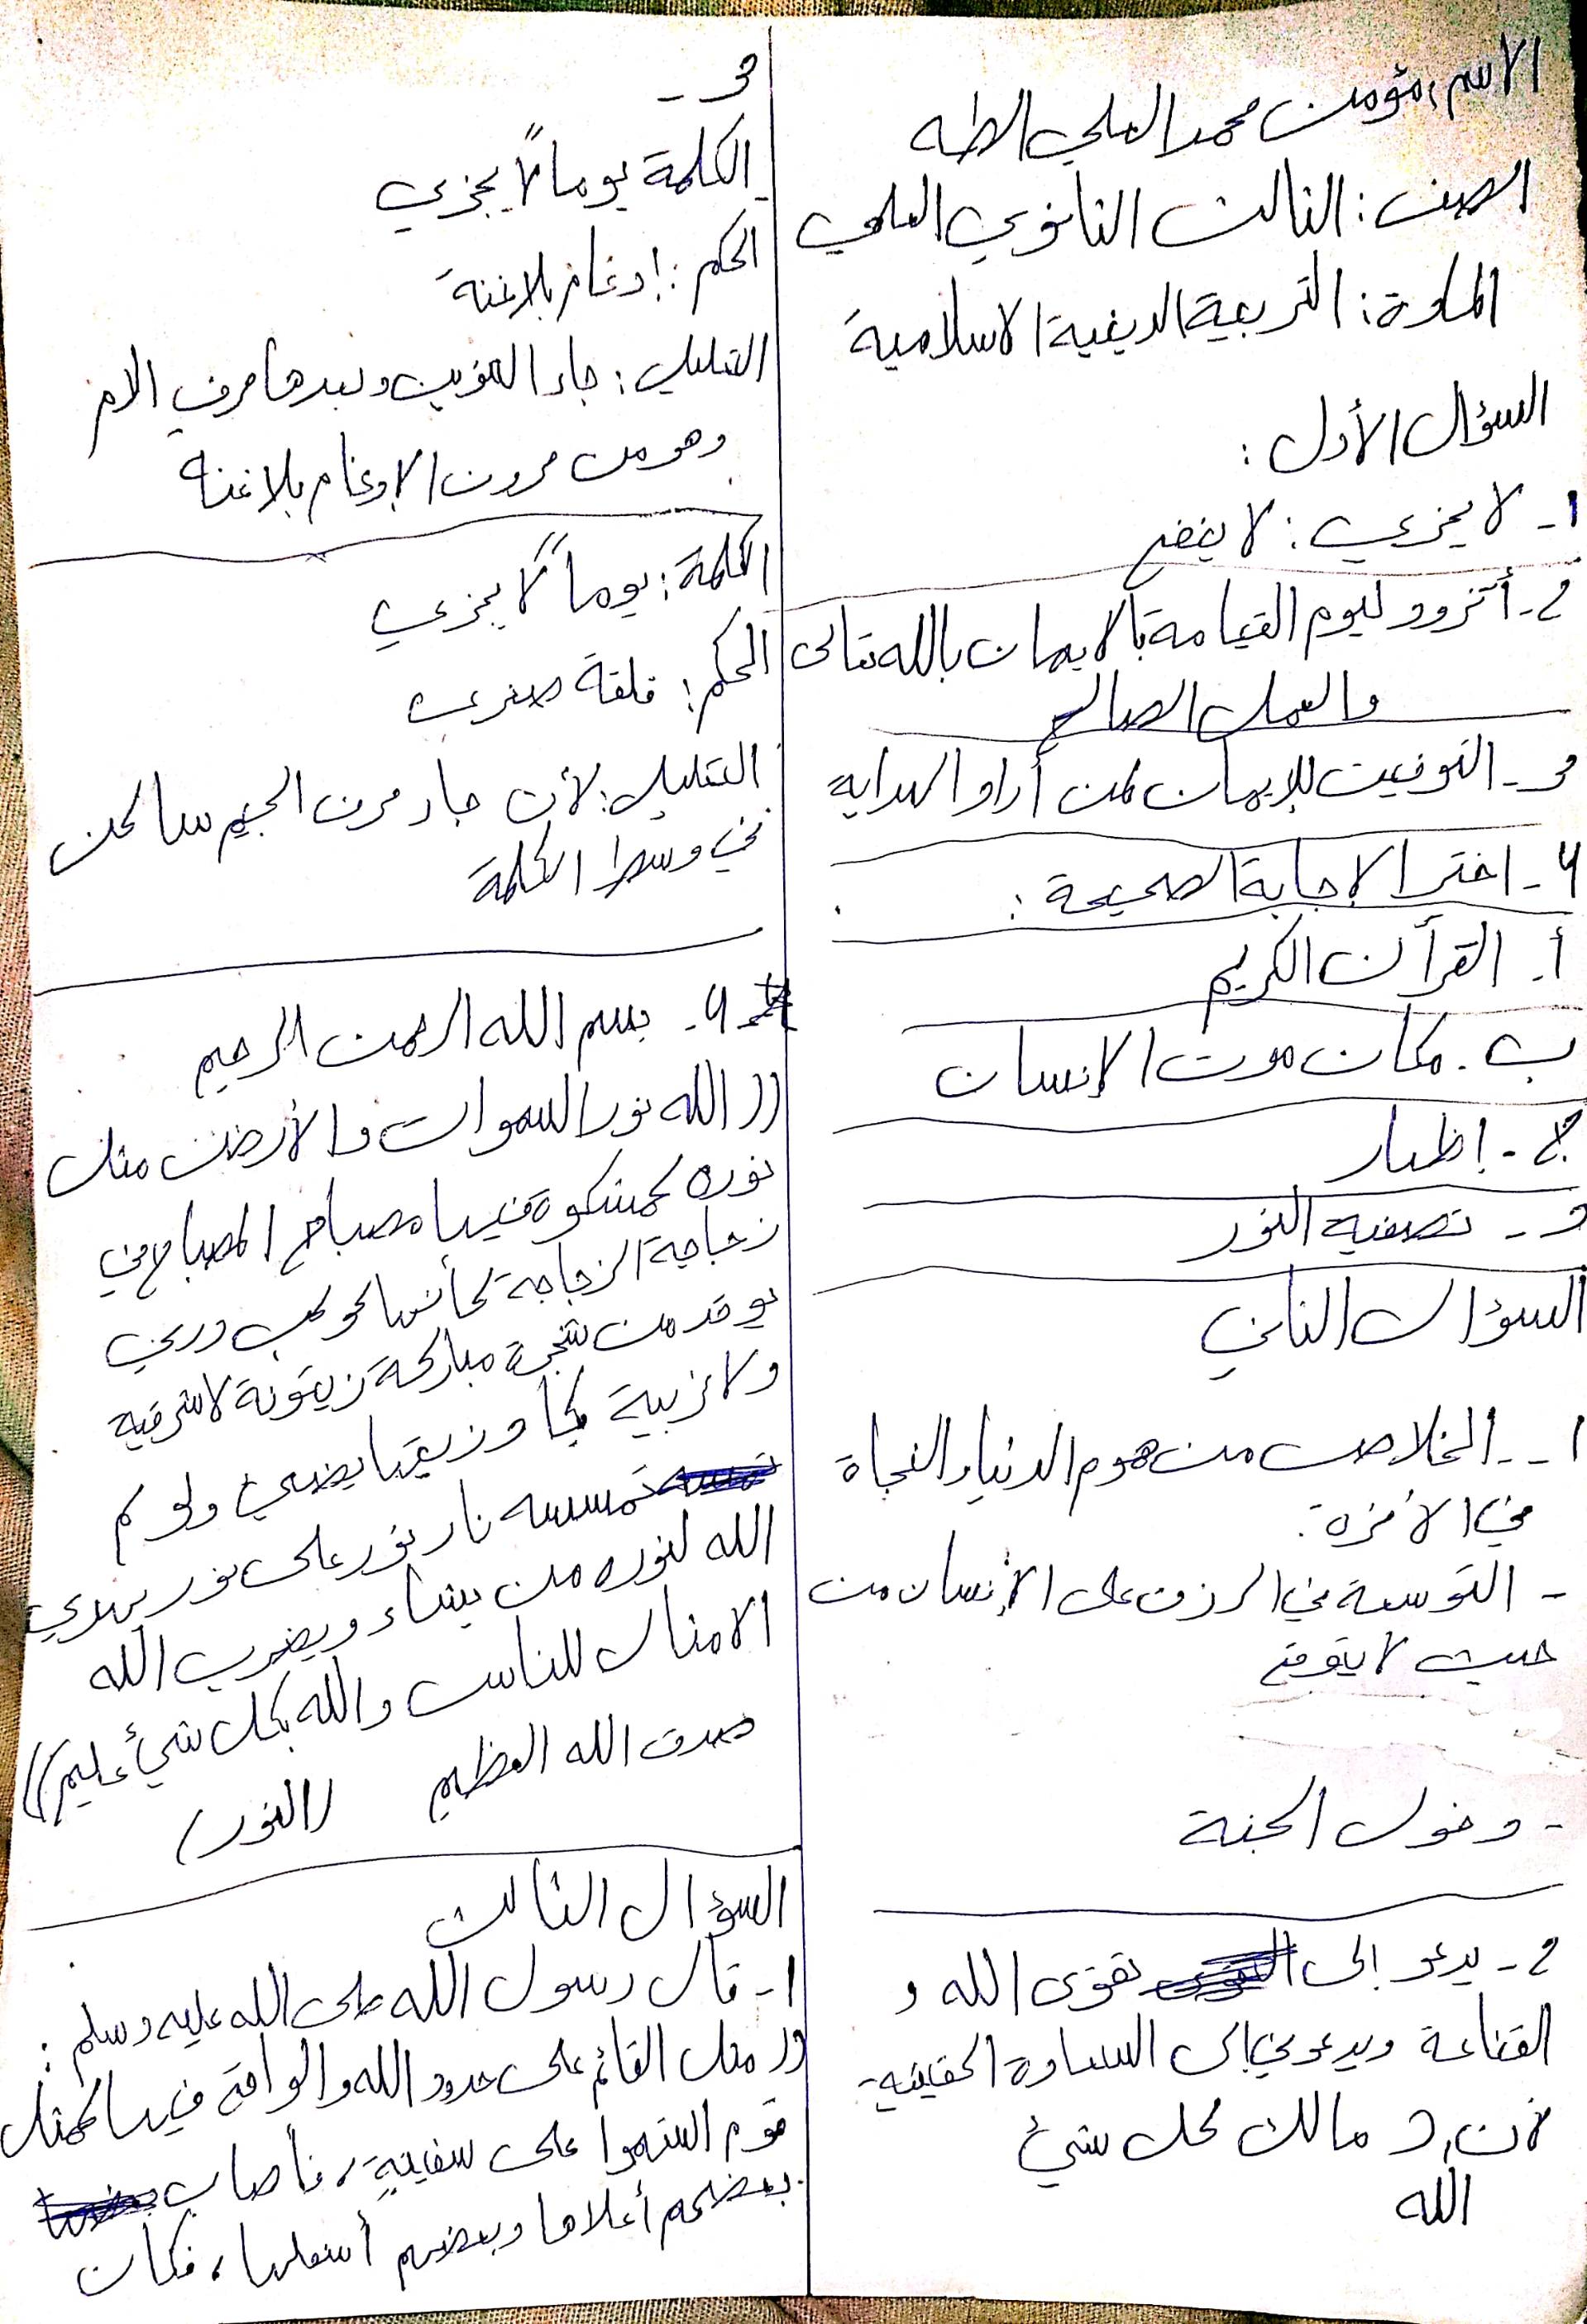 الاسم: مؤمن محمد العلي الطه
الصف: الثالث الثانوي العلمي
المادة: التربية الدينية الاسلامية
السؤال الأول:
1- لا يجزي: لا ينفع
2- أتزود ليوم القيامة بالايمان بالله تعالى
والعمل الصالح
3- التوفيق للإيمان لمن أراد الهداية
4- اختر الإجابة الصحيحة:
أ. القرأن الكريم
ب. مكان موت الإنسان
ج- إظهار
د- تصفيه النور
السؤال الثاني
1- - الخلاص من هموم الدنيا والنجاة
في الأخرة.
- التوسعة في الرزق على الإنسان من
حيث لا يتوقع
- دخول الجنة
2- يدعو إلى تقوى الله و
القناعة ويدعوني إلى السعادة الحقيقية
لأن مالك كل شيئ
الله
3-
الكلمة يوماً لا يجزي
الحكم: إدغام بلاغنة
التعليل: جاء التنوين وبعدها حرف الام
وهو من حروف الإدغام بلاغنه
الكلمة: يوماً لا يجزي
الحكم: قلقة صغرى
التعليل: لأن جاء حرف الجيم ساكن
في وسط الكلمة
4- بسم الله الرحمن الرحيم
((الله نور السموات والأرض مثل
نوره كمشكوة فيها مصباح المصباح في
زجاجة الزجاجة كأنها كوكب دري
يوقد من شجرة مباركة زيتونة لاشرقية
ولاغربية يكاد زيتها يضيئ ولو لم
تمسسه نار نور على نور يهدي
الله لنوره من يشاء ويضرب الله
الامثال للناس والله بكل شيئ عليم))
صدق الله العظيم (النور)
السؤال الثالث
1- قال رسول الله صلى الله عليه وسلم:
((مثل القائم على حدود الله والواقع فيها كمثل
قوم استهموا على سفينةٍ، فأصاب
بعضهم أعلاها وبعضهم أسفلها، فكان